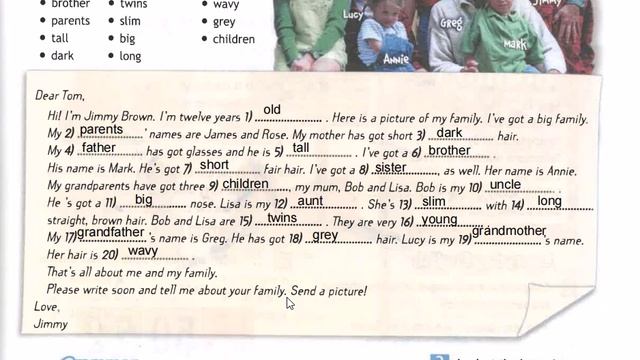 brother
parents
tall
dark
twins
slim
big
long
wavy
grey
children
Lucy
Annie
Greg
Mark
Jimmy
Dear Tom,
Hi! I'm Jimmy Brown. I'm twelve years 1) old. Here is a picture of my family. I've got a big family.
My 2) parents' names are James and Rose. My mother has got short 3) dark hair.
My 4) father has got glasses and he is 5) tall. I've got a 6) brother.
His name is Mark. He's got 7) short fair hair. I've got a 8) sister, as well. Her name is Annie.
My grandparents have got three 9) children, my mum, Bob and Lisa. Bob is my 10) uncle.
He 's got a 11) big nose. Lisa is my 12) aunt. She's 13) slim with 14) long
straight, brown hair. Bob and Lisa are 15) twins. They are very 16) young.
My 17) grandfather's name is Greg. He has got 18) grey hair. Lucy is my 19) grandmother's name.
Her hair is 20) wavy.
That's all about me and my family.
Please write soon and tell me about your family. Send a picture!
Love,
Jimmy